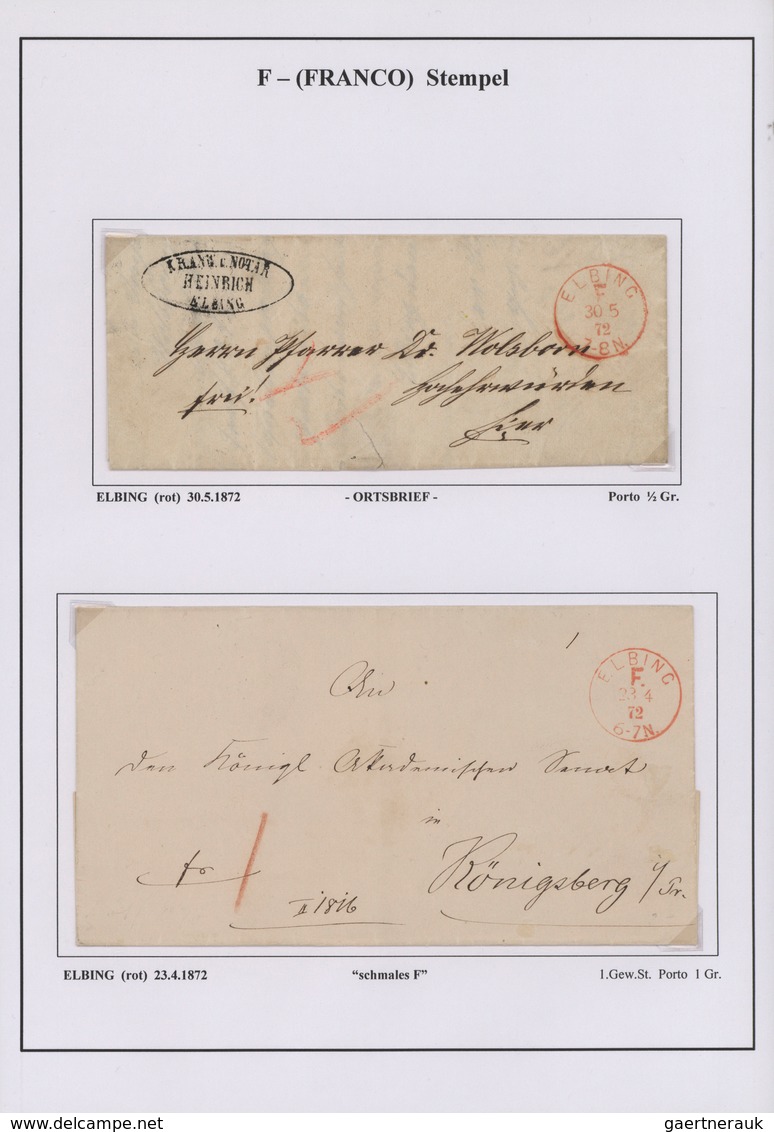 F – (FRANCO) Stempel
R.ANW. u. NOTAR
HEINRICH
ELBING
ELBING
F.
30 5
72
-8N.
Herrn Pfarrer Dr.
Hochehrwürden
frei!
Hier
ELBING (rot) 30.5.1872 - ORTSBRIEF - Porto ½ Gr.
1
ELBING
F.
23 4
72
6-7N.
An
den Königl. Akademischen Senat
in
Königsberg i/Pr.
fr
1
II 1816
ELBING (rot) 23.4.1872 “schmales F” 1.Gew.St. Porto 1 Gr.
delcampe.net
gaertnerauk